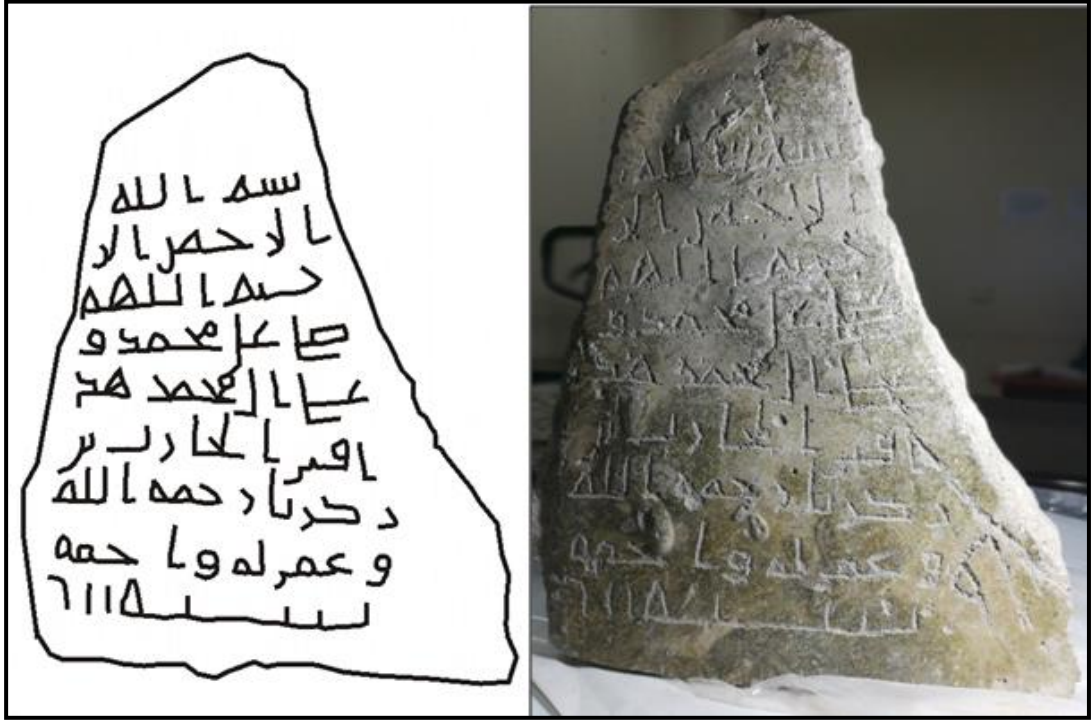 بسم الله
الرحمن الر
حيم اللهم
صل على محمد و
على ال محمد هذ
ا قبر الحارث بن
ذكريا رحمه الله
وغفر له
٦١١٥